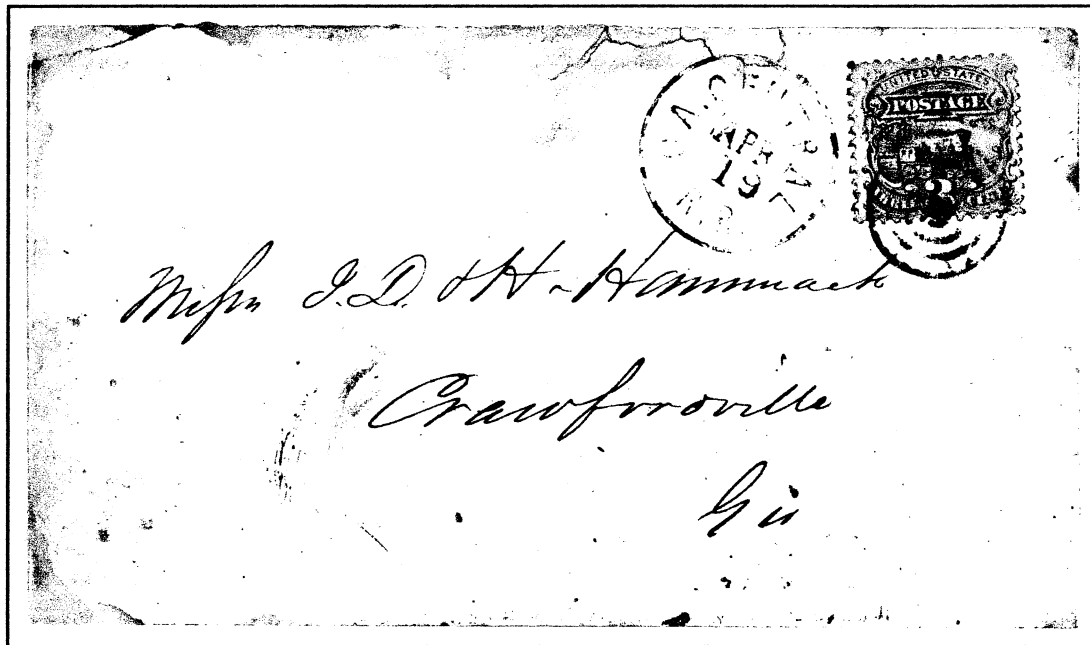 GA. CENTRAL R.R.
APR
19
UNITED STATES
POSTAGE
3
Messrs J. D. & H. Hammack
Crawfordville
Ga